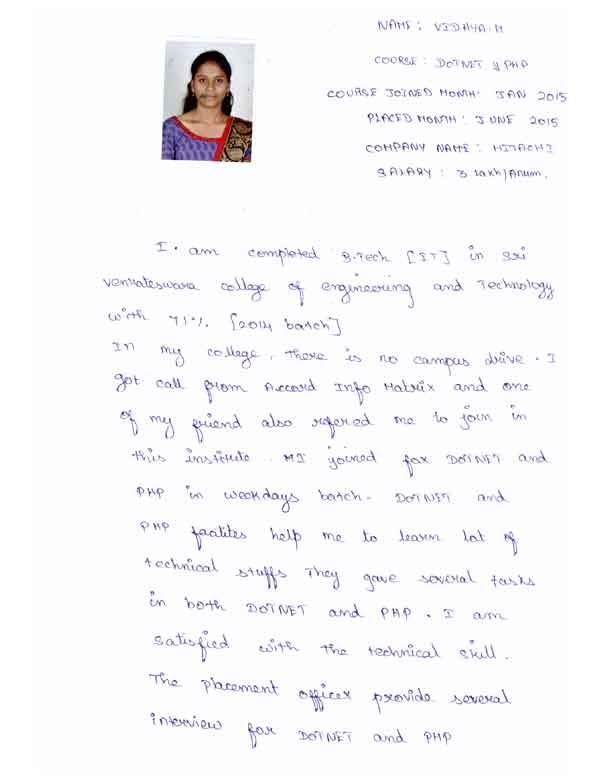 NAME: VIDHYA.M
COURSE: DOTNET & PHP
COURSE JOINED MONTH: JAN 2015
PLACED MONTH: JUNE 2015
COMPANY NAME: HITACHI
SALARY: 3 Lakh/Anum.
I. am completed B.Tech [IT] in Sri
Venkateswara college of engineering and Technology
with 71% [2014 batch]
In my college, there is no campus drive. I
got call from Accord Info Matrix and one
of my friend also refered me to join in
this institute. I joined for DOTNET and
PHP in weekdays batch. DOTNET and
PHP faclites help me to learn lot of
technical stuffs They gave several tasks
in both DOTNET and PHP. I am
satisfied with the technical skill.
The placement officer provide several
interview for DOTNET and PHP